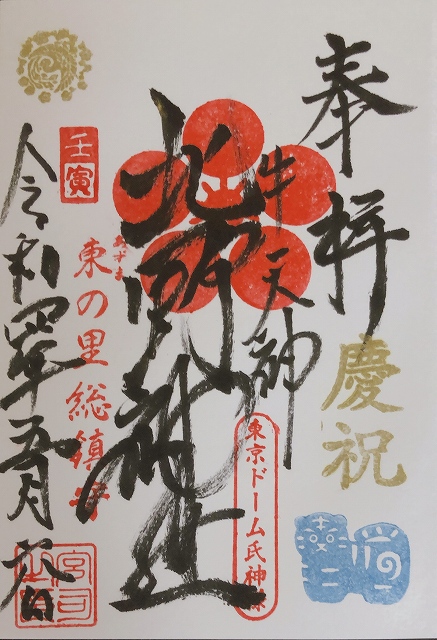 奉拝
慶祝
牛天神
東京ドーム氏神様
北野神社
壬寅
あずま
東の里総鎮守
令和四年五月
宮司之印